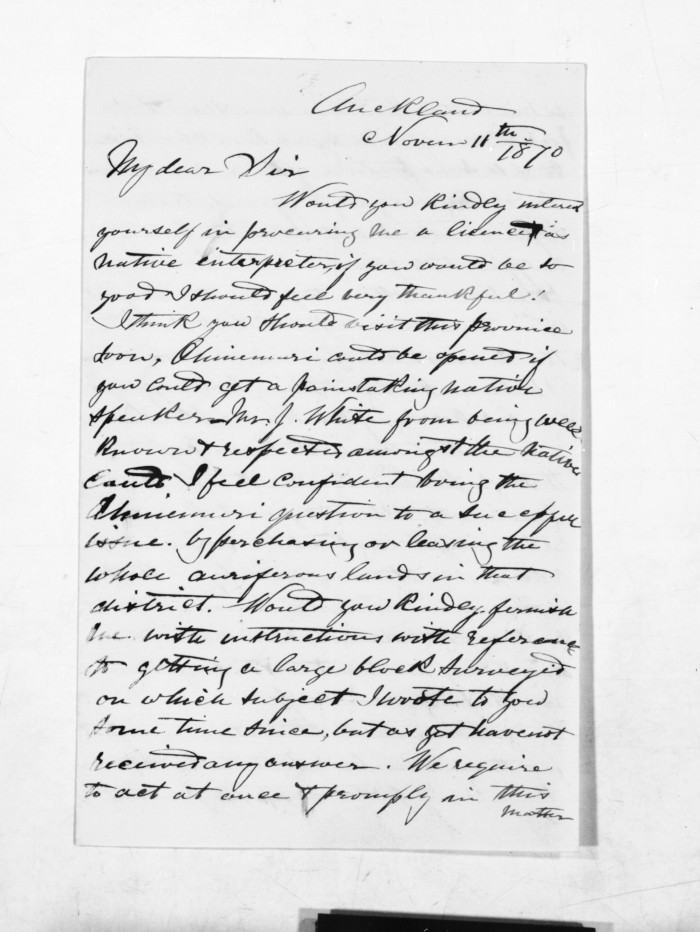 Auckland
Novem 11th 1870
My dear Sir
Would you kindly interes
yourself in procuring me a licence as
native interpreter, if you would be so
good I should feel very thankful!
I think you should visit this province
soon, Ohinemuri could be opened if
you could get a painstaking native
speaker Mr. J. White from being well
known & respected amongst the Native
I feel confident bring the
Ohinemuri question to a
issue. by perchasing or leasing the
whole auriferous lands in that
district. Would you kindly furnish
me with instructions with reference
to getting a large block survey'd
on which subject I wrote to you
some time since, but as yet have not
received any answer. We require
to act at once & promply in this
matter